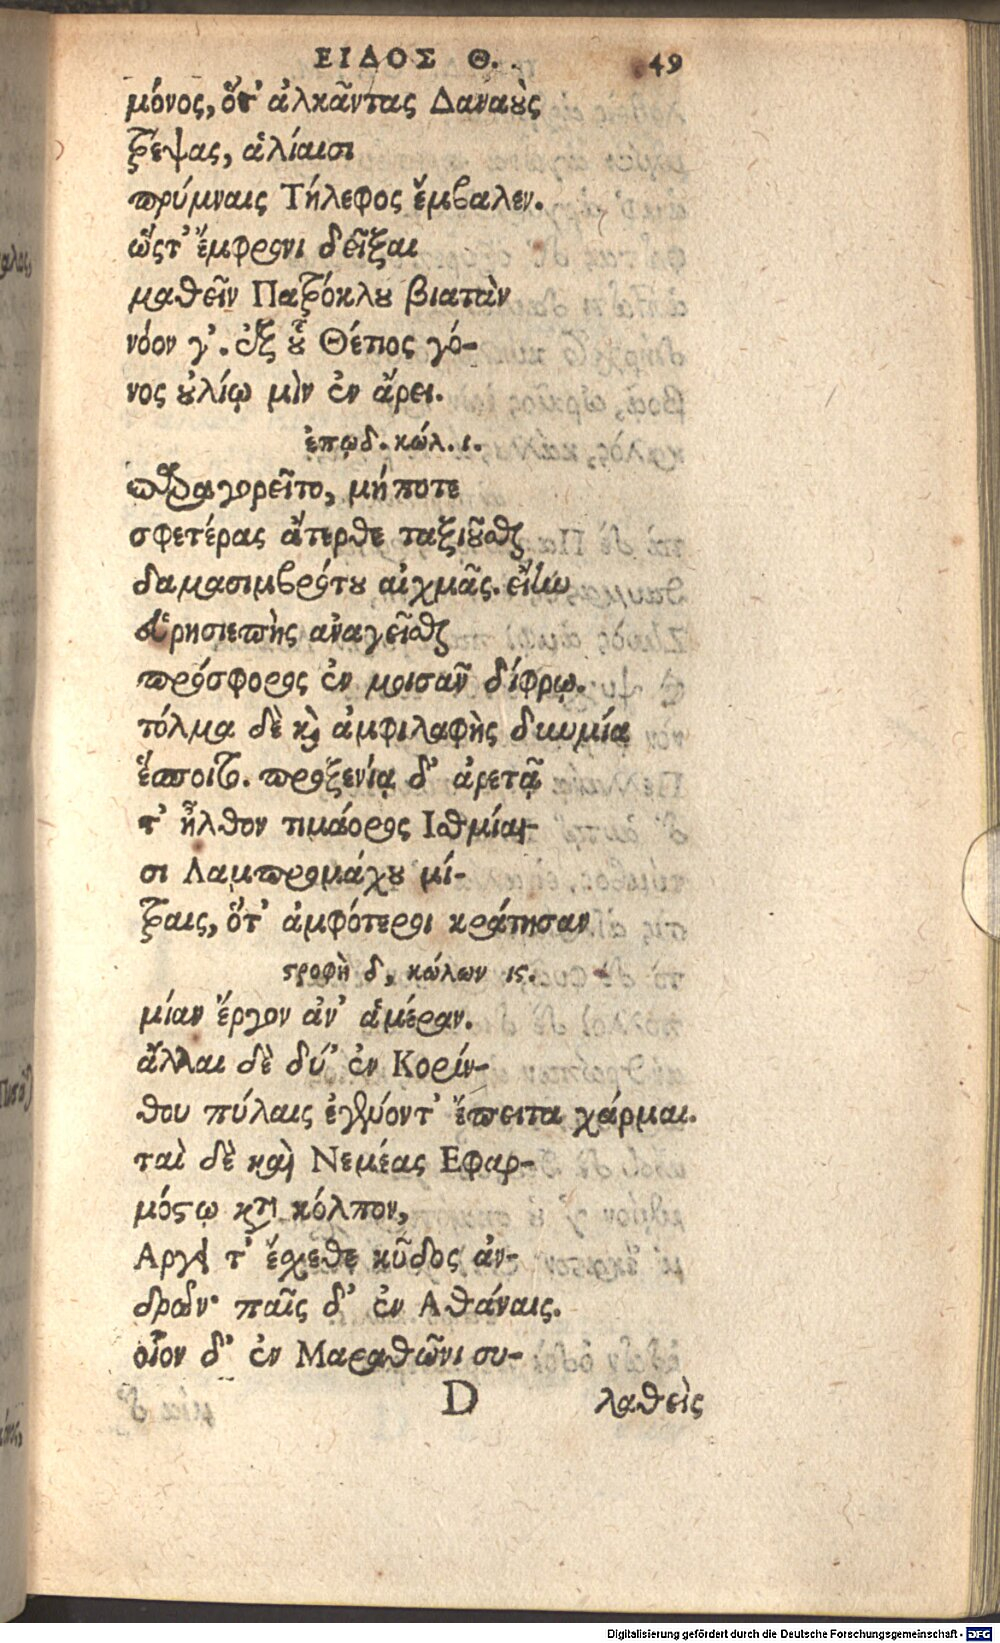 ΕΙΔΟΣ Θ. 49
μόνος, ὅτ' ἀλκᾶντας Δαναοὺς
τρέψας, ἁλίαισι
πρύμναις Τήλεφος ἔμβαλεν.
ὥςτ' ἔμφρονι δεῖξαι
μαθεῖν Πατρόκλου βιατὰν
νόον γ'. ἐξ οὗ Θέτιος γό-
νος οὐλίῳ μὶν ἐν ἄρει.
ἐπῳδ. κώλ. ι.
παραγορεῖτο, μή ποτε
σφετέρας ἄτερθε ταξιοῦσθαι
δαμασιμβρότου αἰχμᾶς. εἴην
εὑρησιεπὴς ἀναγεῖσθαι
πρόσφορος ἐν μοισᾶν δίφρῳ.
τόλμα δὲ καὶ ἀμφιλαφὴς δύναμις
ἕσποιτο. προξενίᾳ δ' ἀρετᾷ
τ' ἦλθον τιμάορος Ισθμίαι-
σι Λαμπρομάχου μί-
τραις, ὅτ' ἀμφότεροι κράτησαν
στροφὴ δ, κώλων ις.
μίαν ἔργον ἀν' ἁμέραν.
ἄλλαι δὲ δύ' ἐν Κορίν-
θου πύλαις ἐγένοντ' ἔπειτα χάρμαι.
ταὶ δὲ καὶ Νεμέας Εφαρ-
μόστῳ κατὰ κόλπον,
Αργει τ' ἔσχεθε κῦδος ἀν-
δρῶν· παῖς δ' ἐν Αθάναις.
οἷον δ' ἐν Μαραθῶνι συ-
D λαθεὶς
Digitalisierung gefördert durch die Deutsche Forschungsgemeinschaft - DFG